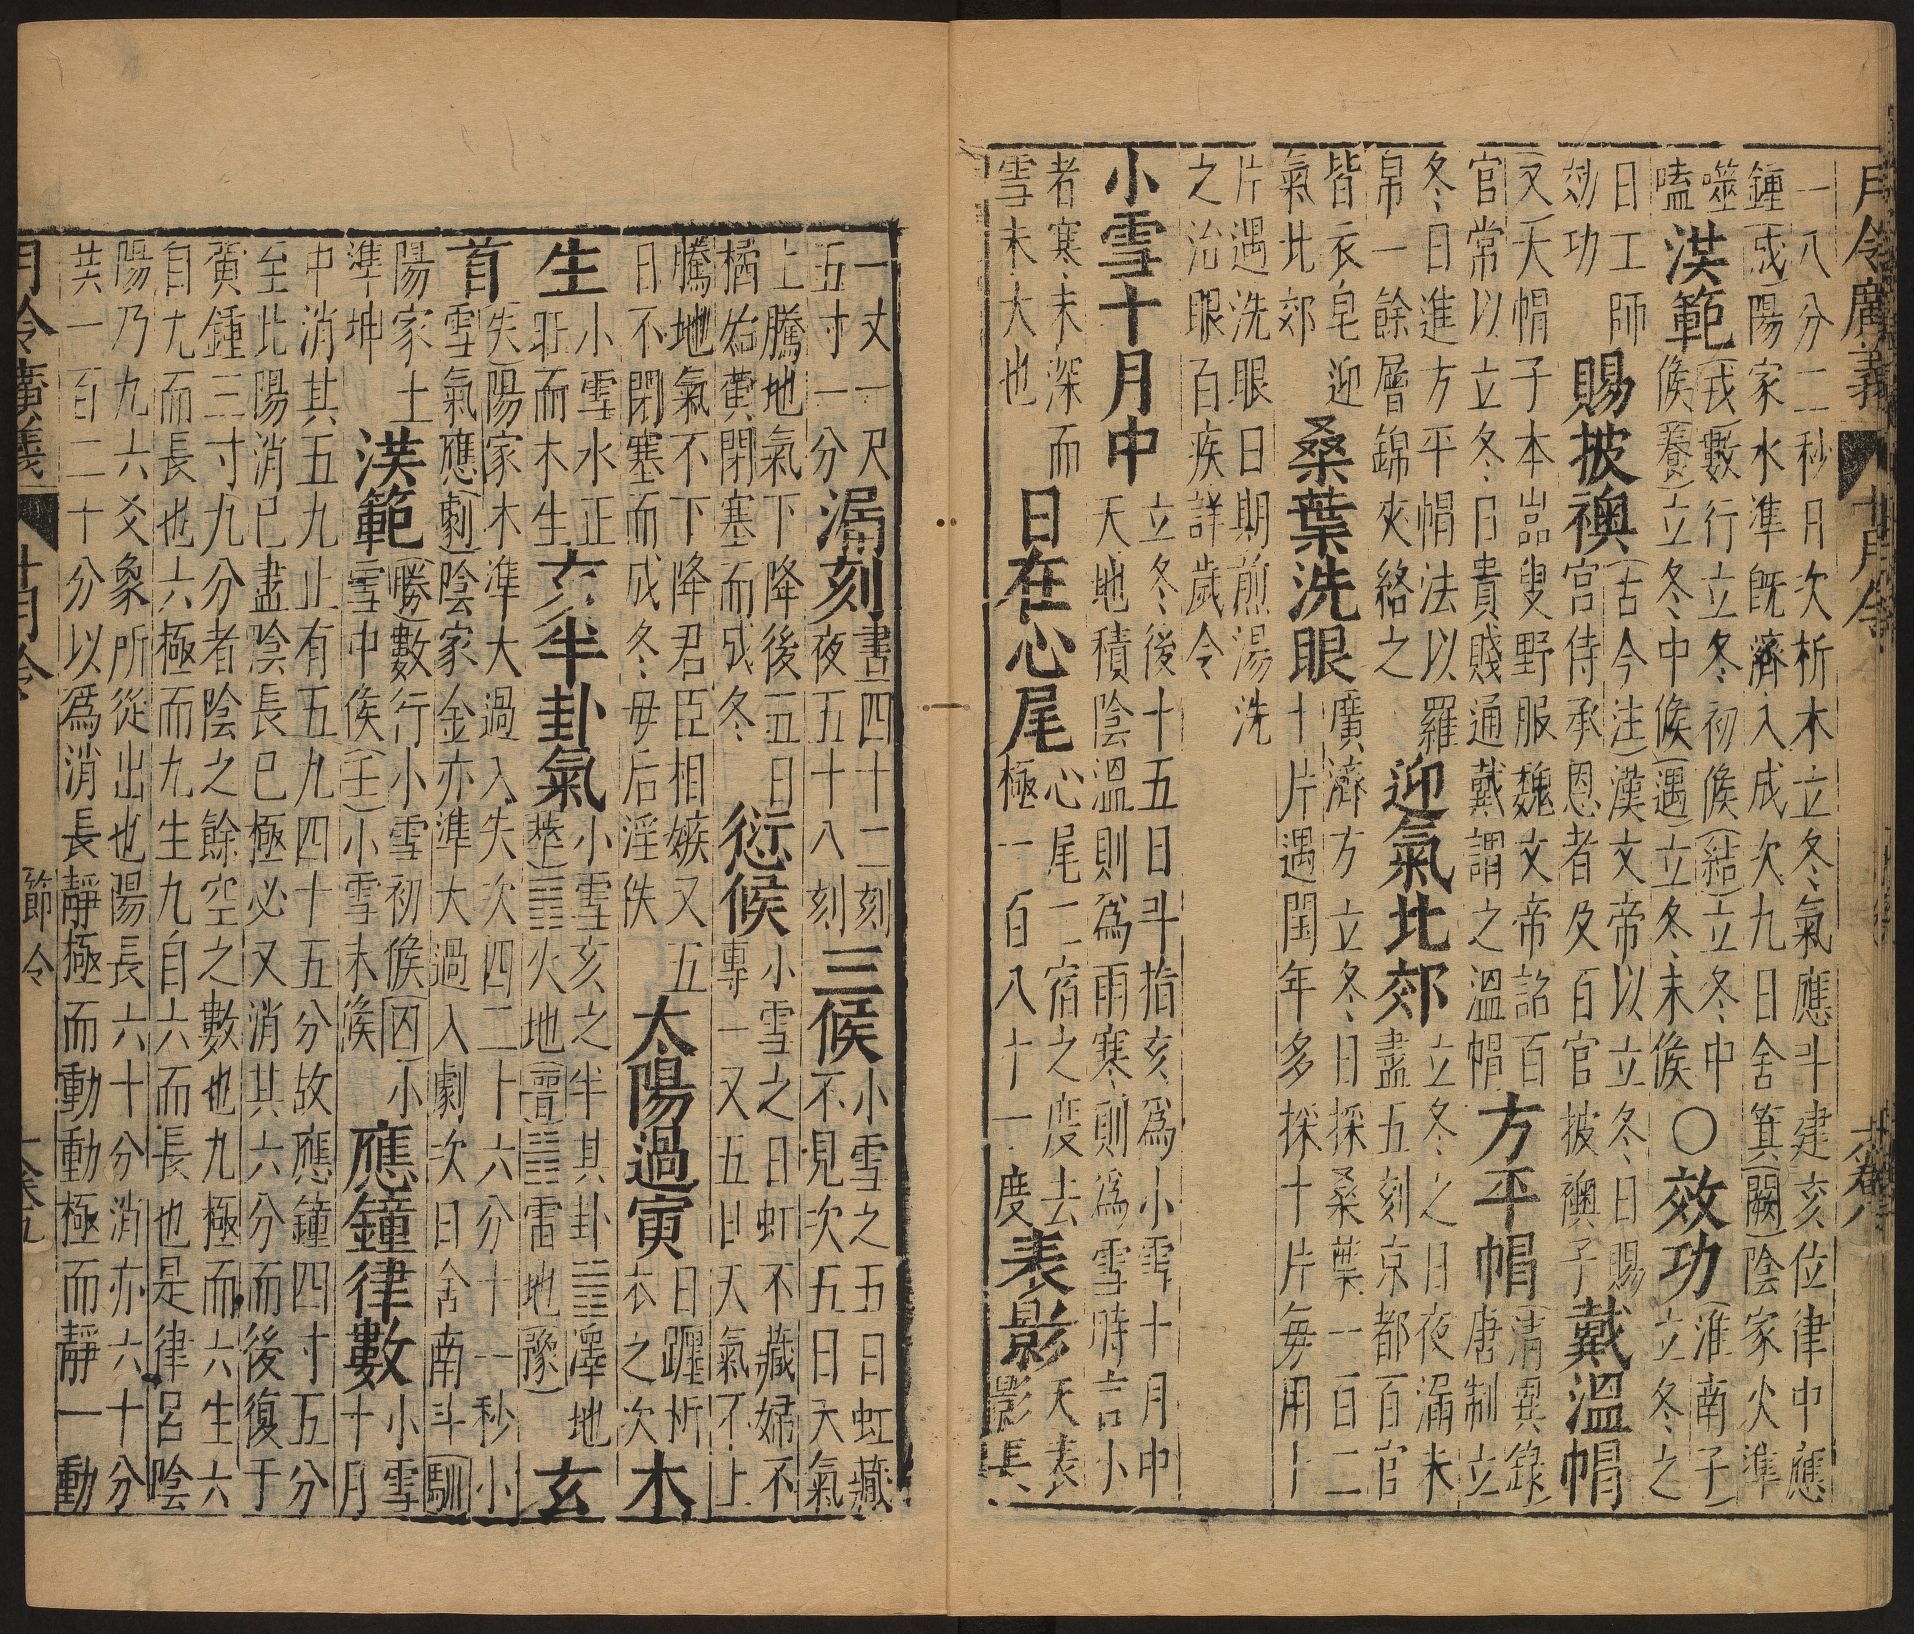 月令廣義 十月令 卷八
一八分二秒月次析木立冬氣應斗建亥位律中應
鍾(成)陽家水準既濟入成次九日舍箕(闕)陰家火準
噬嗑 洪範 (戎)數行立冬初候(結)立冬中候(養)立冬中候(遇)立冬末候 ○效功 (淮南子)立冬之
日工師效功 賜披襖 (古今注)漢文帝以立冬日賜宮侍承恩者及百官披襖子 戴溫帽
又天帽子本嵓叟野服魏文帝詔百官常以立冬日貴賤通戴謂之溫帽 方平帽 (清異錄)唐制立
冬日進方平帽法以羅帛一餘層錦夾絡之 迎氣北郊 立冬之日夜漏未盡五刻京都百官
皆衣皂迎氣北郊 桑葉洗眼 廣濟方立冬日採桑葉一百二十片遇閏年多採十片每用十
片遇洗眼日期煎湯洗之治眼百疾詳歲令
小雪十月中 立冬後十五日斗指亥為小雪十月中天地積陰溫則為雨寒則為雪時言小
者寒未深而雪未大也 日在心尾 心尾二宿之度去極一百八十一度 表影 天表影長
一丈一尺五寸一分 漏刻 晝四十二刻夜五十八刻 三候 小雪之五日虹藏不見次五日天氣
上騰地氣下降後五日閉塞而成冬 愆候 小雪之日虹不藏婦不專一又五日天氣不上
騰地氣不下降君臣相嫉又五日不閉塞而成冬毋后淫佚 太陽過寅 日躔析木之次 木
生 小雪水正旺而木生 六半卦氣 小雪亥之半其卦澤地萃火地(晉)雷地(豫) 玄
首 (失)陽家木準大過入失次四二十六分十一秒小雪氣應(劇)陰家金亦準大過入劇次日舍南斗(馴)
陽家土準坤 洪範 (勝)數行小雪初候(囚)小雪中候(壬)小雪末候 應鐘律數 小雪十月
中消其五九止有五九四十五分故應鐘四寸五分
至此陽消已盡陰長已極必又消其六分而後復于
黃鍾三寸九分者陰之餘空之數也九極而六生六
自九而長也六極而九生九自六而長也是律呂陰
陽乃九六爻象所從出也陽長六十分消亦六十分
共一百二十分以為消長靜極而動動極而靜一動
月令廣義 十月令 節令